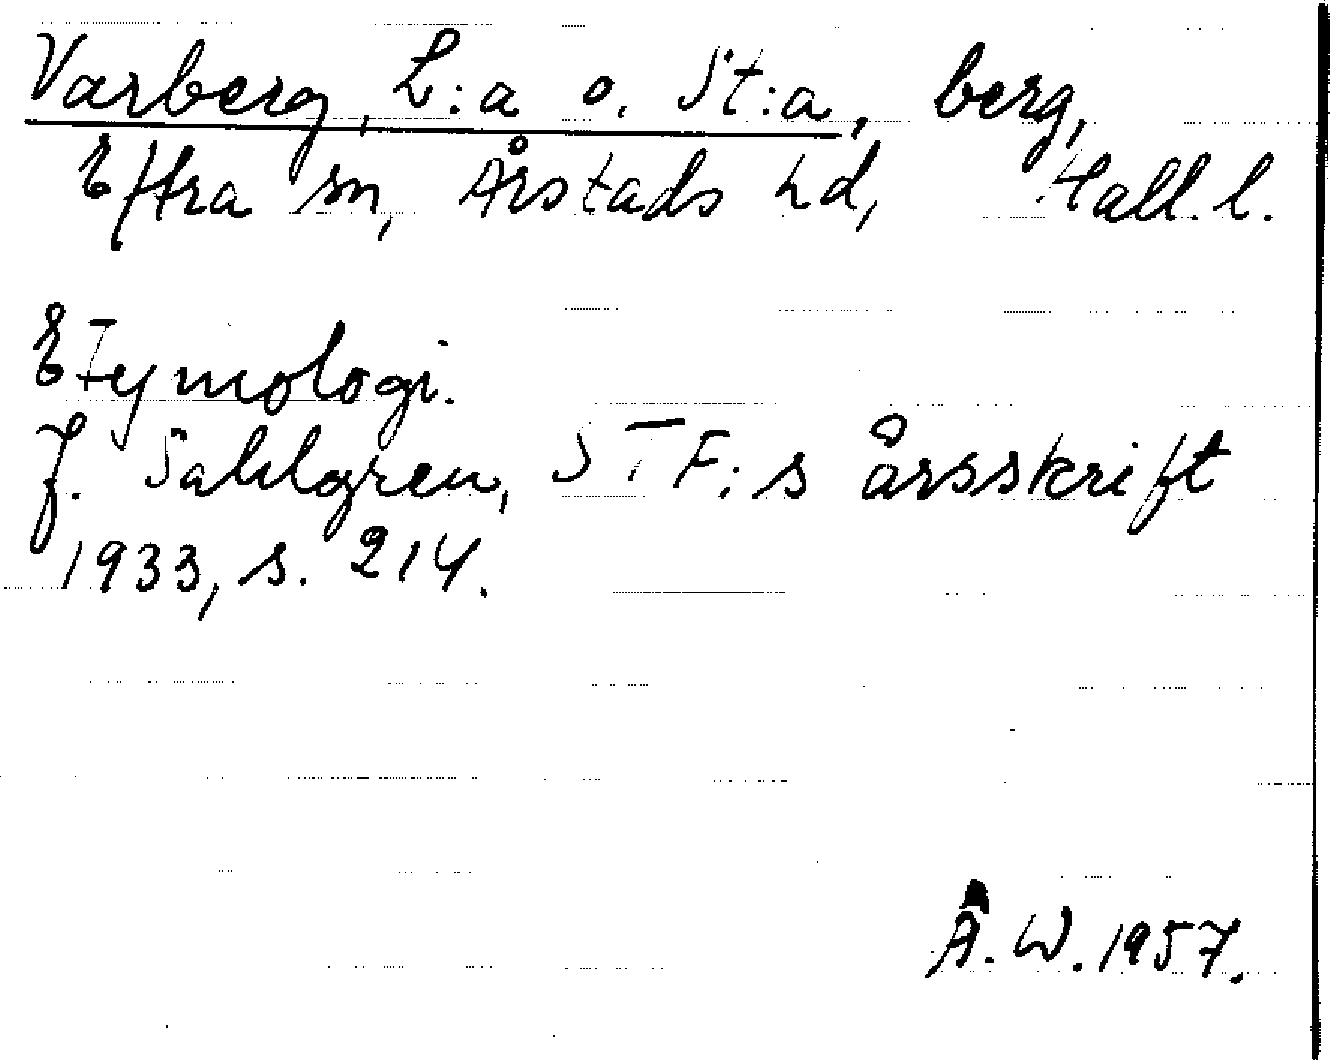 Varberg, L:a o. St:a, berg,
Eftra sn, Årstads hd, Hall. l.
Etymologi.
J. Sahlgren, STF:s årsskrift
1933, s. 214.
Å. W. 1957.